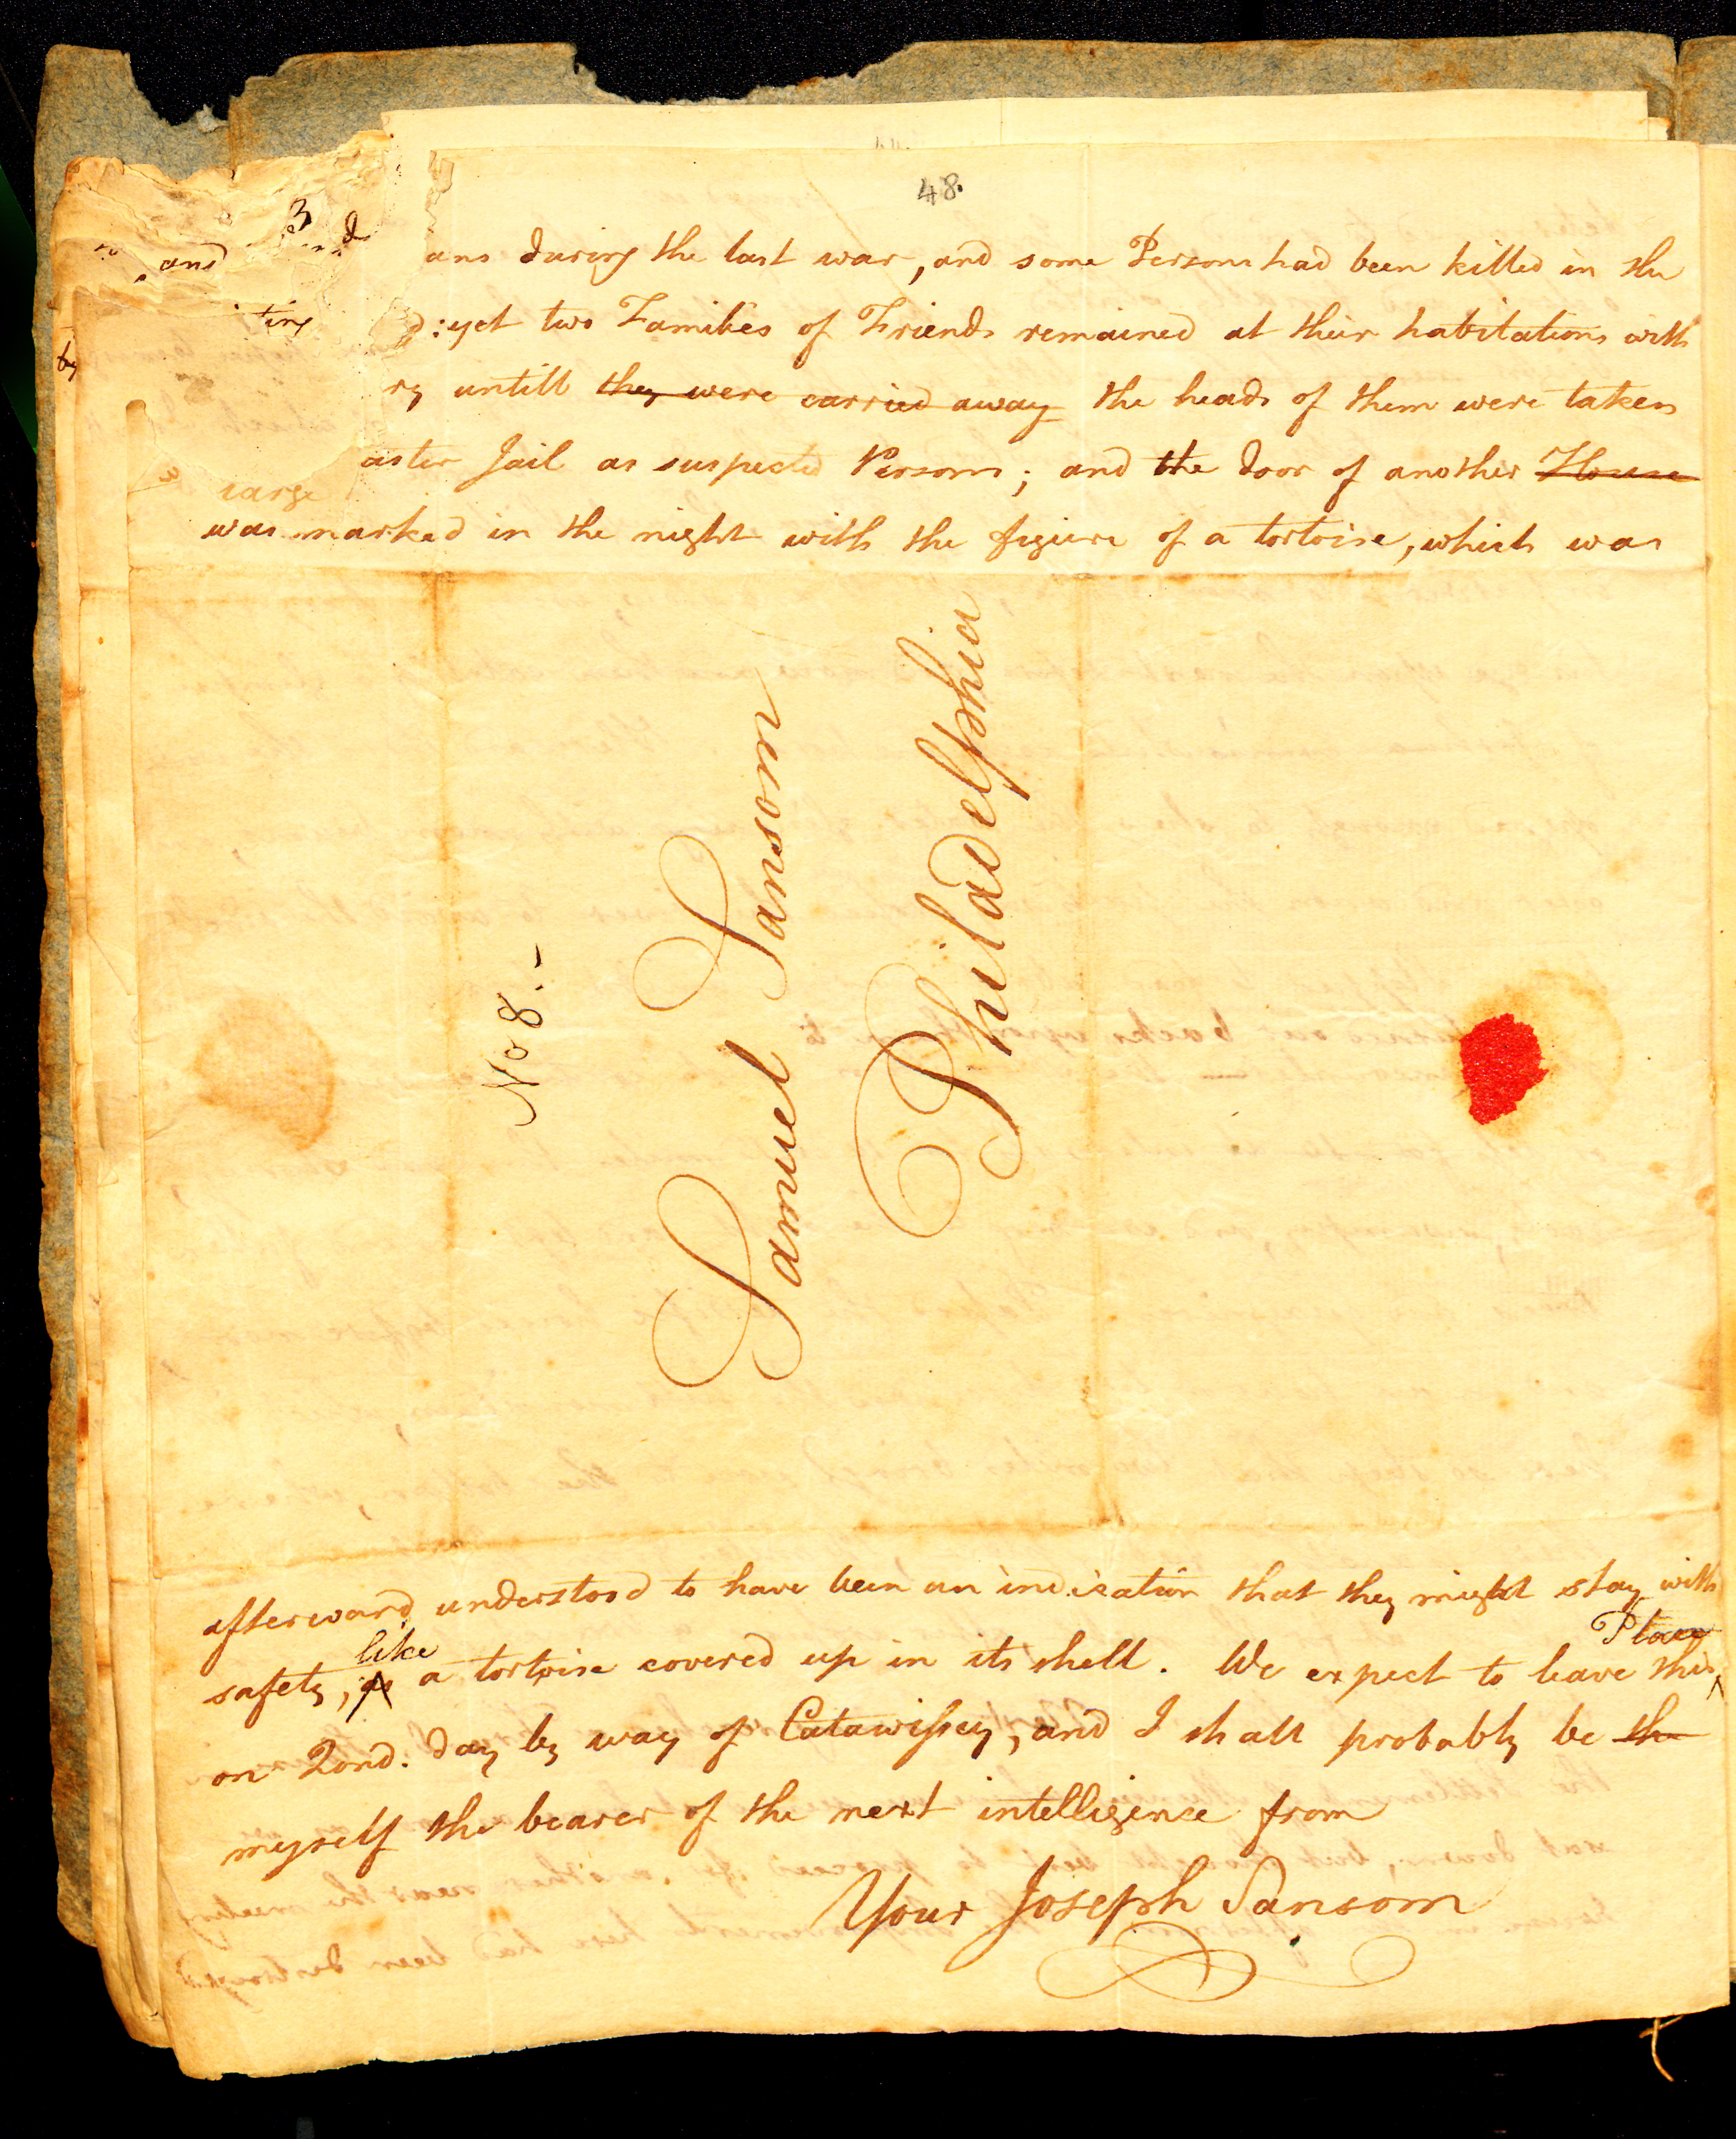 48.
ans during the last war, and some Persons had been killed in the
d: yet two Families of Friends remained at their habitations with
ry untill they were carried away the heads of them were taken
aster Jail as suspected Persons; and the door of another House
was marked in the night with the figure of a tortoise, which was
and
3
ting
by
large
No 8.-
Samuel Sansom
Philadelphia
afterward understood to have been an indication that they might stay with
safety, like a tortoise covered up in its shell. We expect to leave this Place
on 2ond. day by way of Catawissey, and I shall probably be the
myself the bearer of the next intelligence from
Your Joseph Sansom